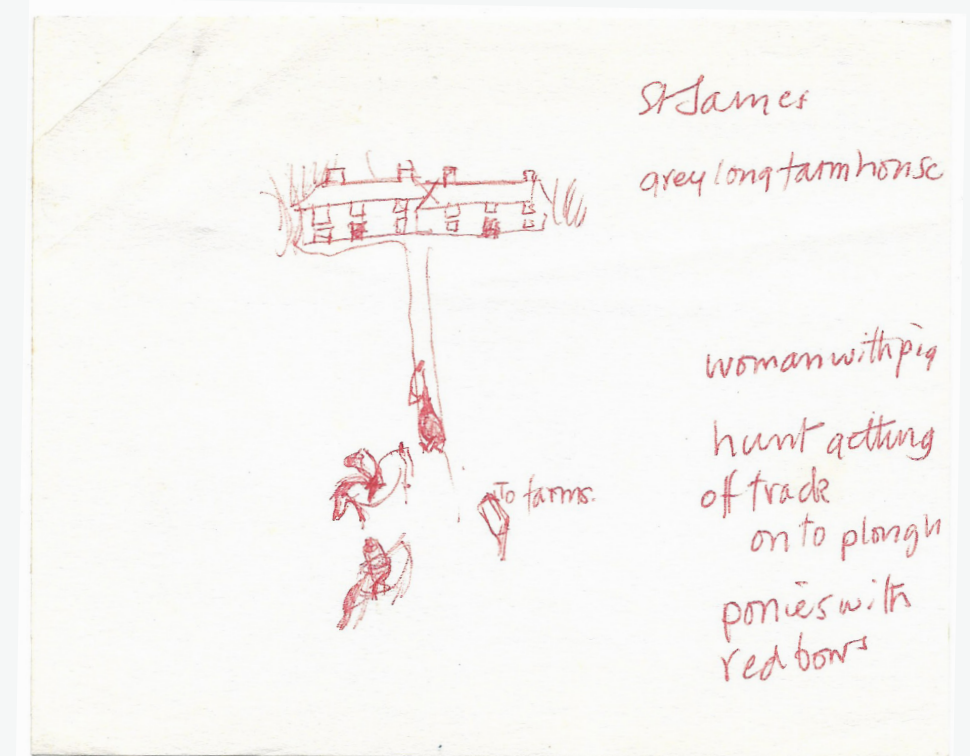 St James
grey long farmhouse
woman with pig
hunt getting
off track
on to plough
To farms.
ponies with
red bows